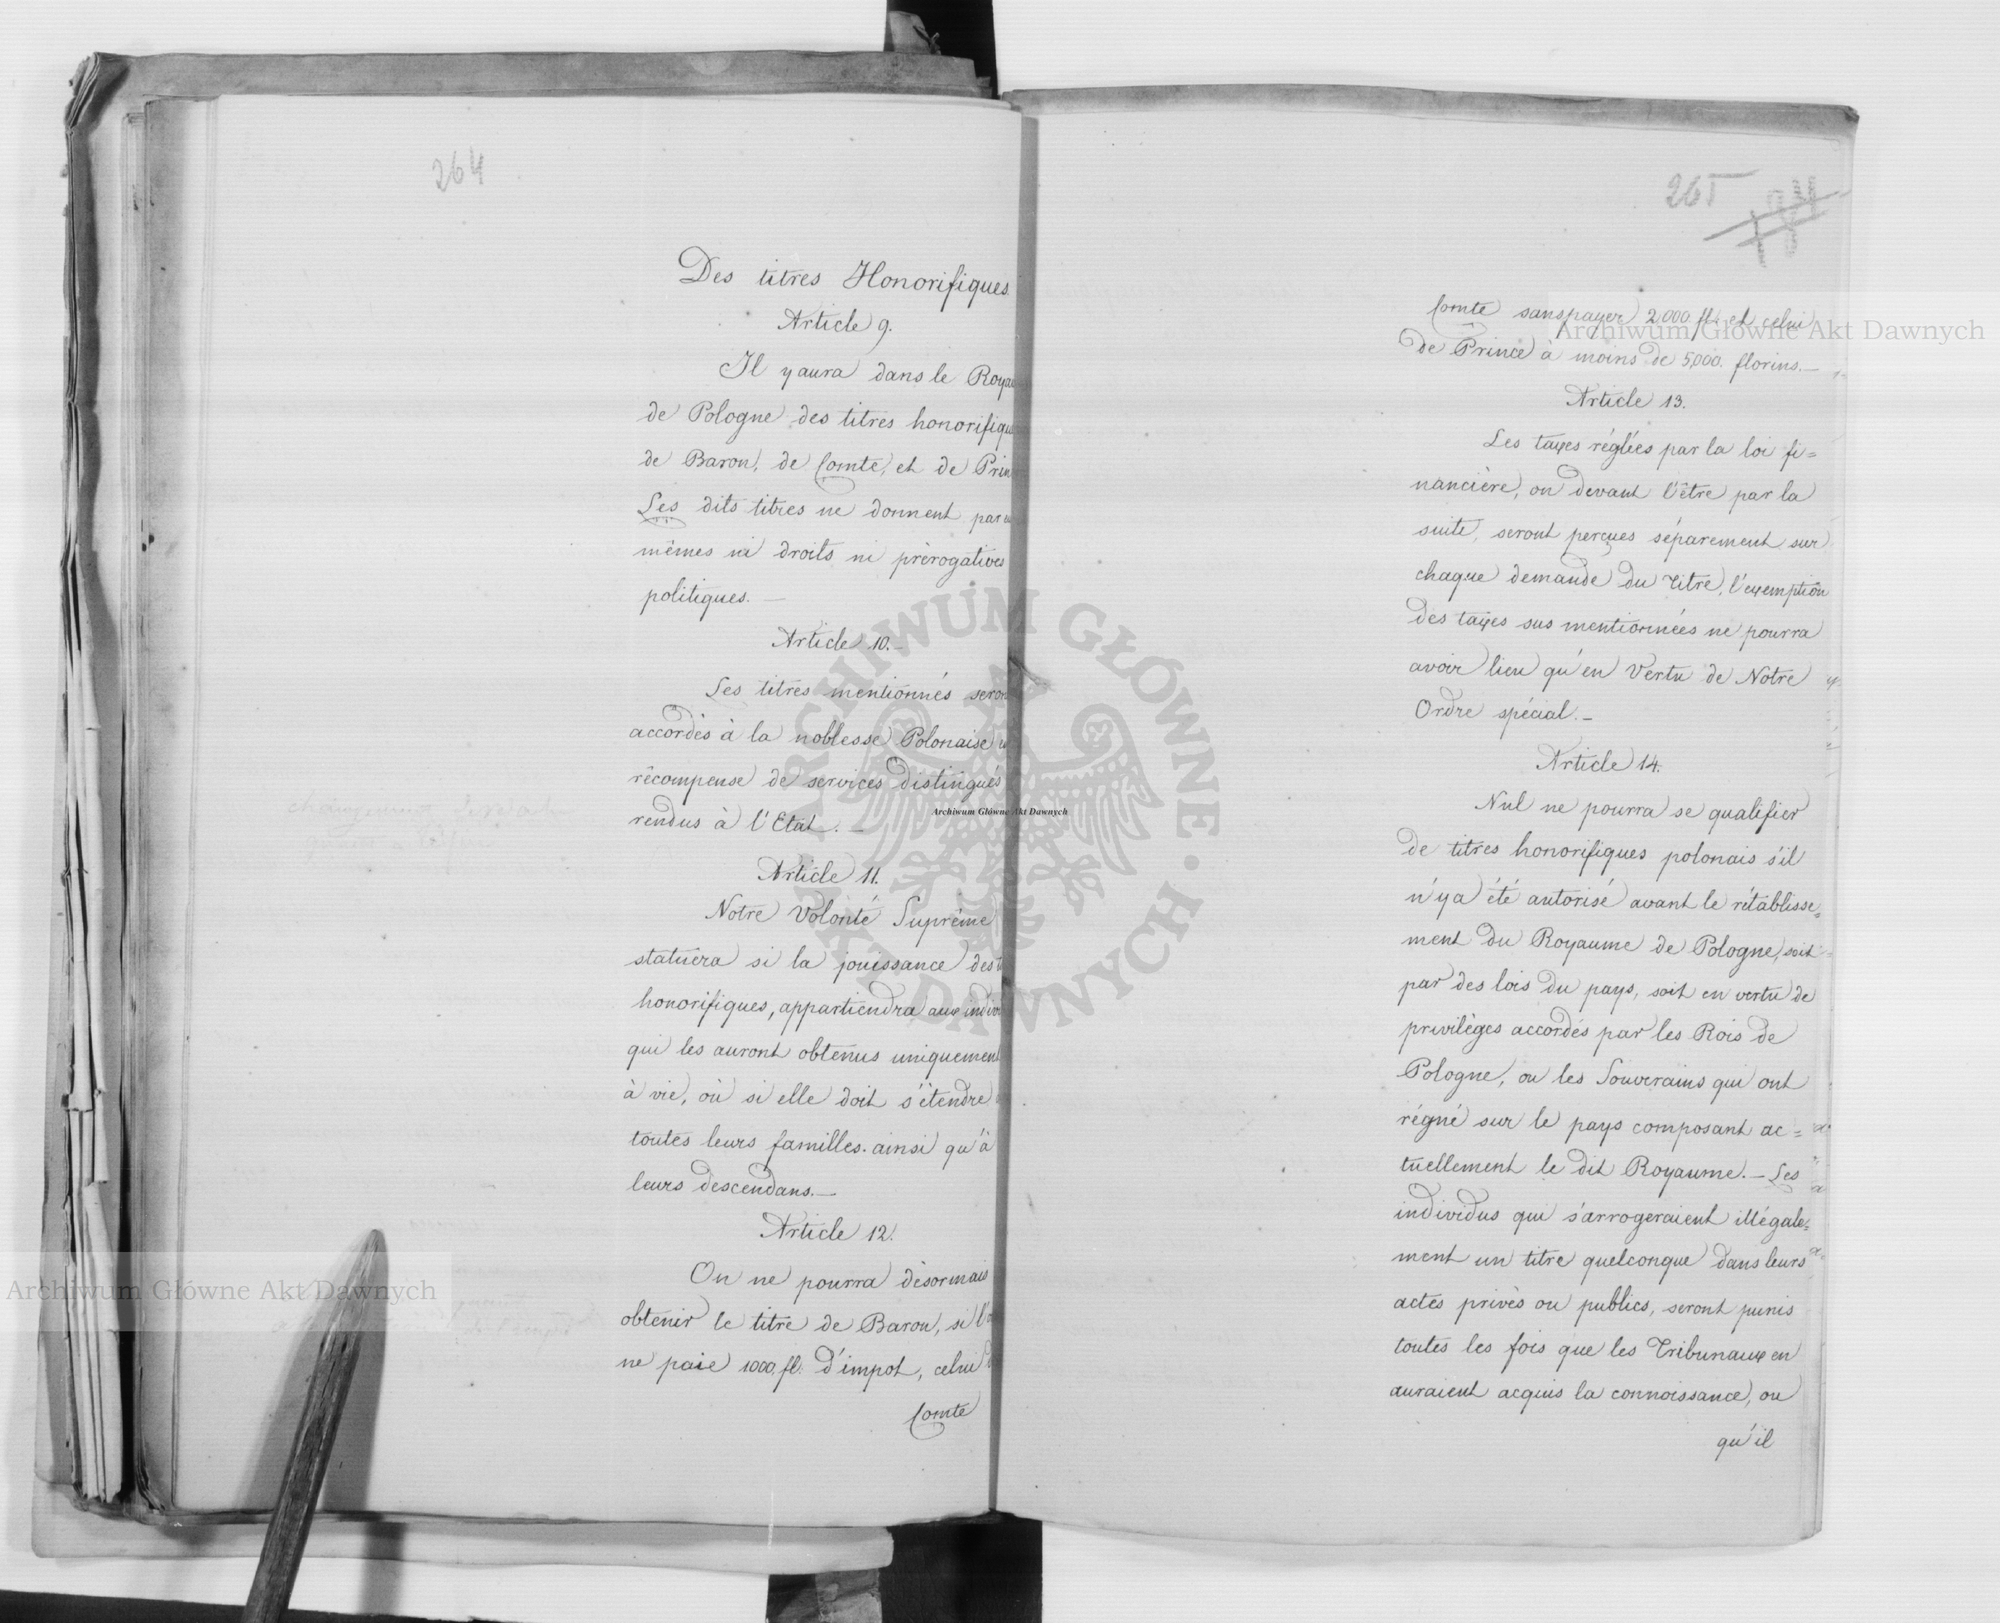 264
Des titres Honorifiques.
Article 9.
Il y aura dans le Royau
de Pologne des titres honorifiqu
de Baron, de Comte, et de Prin
Les dits titres ne donnent par
mêmes ni droits ni prérogatives
politiques. —
Article 10. —
Les titres mentionnés seron
accordés à la noblesse Polonaise
récompense de services distingués
rendus à l'Etat. —
Article 11.
Notre Volonté Suprême
statuera si la jouissance des
honorifiques, appartiendra aux indivi
qui les auront obtenus uniquement
à vie, où si elle doit s'étendre
toutes leurs familles. ainsi qu'à
leurs descendans. —
Article 12.
On ne pourra désormais
obtenir le titre de Baron, si l'o
ne paie 1000 fl. d'impot, celui
Comte
265
Comte sans payer 2,000 fl. et celui
de Prince à moins de 5,000. florins. —
Article 13.
Les taxes réglées par la loi fi=
nancière, ou devant l'être par la
suite, seront perçues séparement sur
chaque demande du titre, l'exemption
des taxes sus mentionnées ne pourra
avoir lieu qu'en Vertu de Notre
Ordre spécial. —
Article 14.
Nul ne pourra se qualifier
de titres honorifiques polonais s'il
n'y a été autorisé avant le rétablisse=
ment du Royaume de Pologne, soit
par des lois du pays, soit en vertu de
privilèges accordés par les Rois de
Pologne, ou les Souverains qui ont
régné sur le pays composant ac=
tuellement le dit Royaume. — Les
individus qui s'arrogeraient illégale=
ment un titre quelconque dans leurs
actes privés ou publics, seront punis
toutes les fois que les Tribunaux en
auraient acquis la connoissance, ou
qu'il
Archiwum Główne Akt Dawnych
Archiwum Główne Akt Dawnych
Archiwum Główne Akt Dawnych
ARCHIWUM GŁÓWNE · AKT DAWNYCH ·